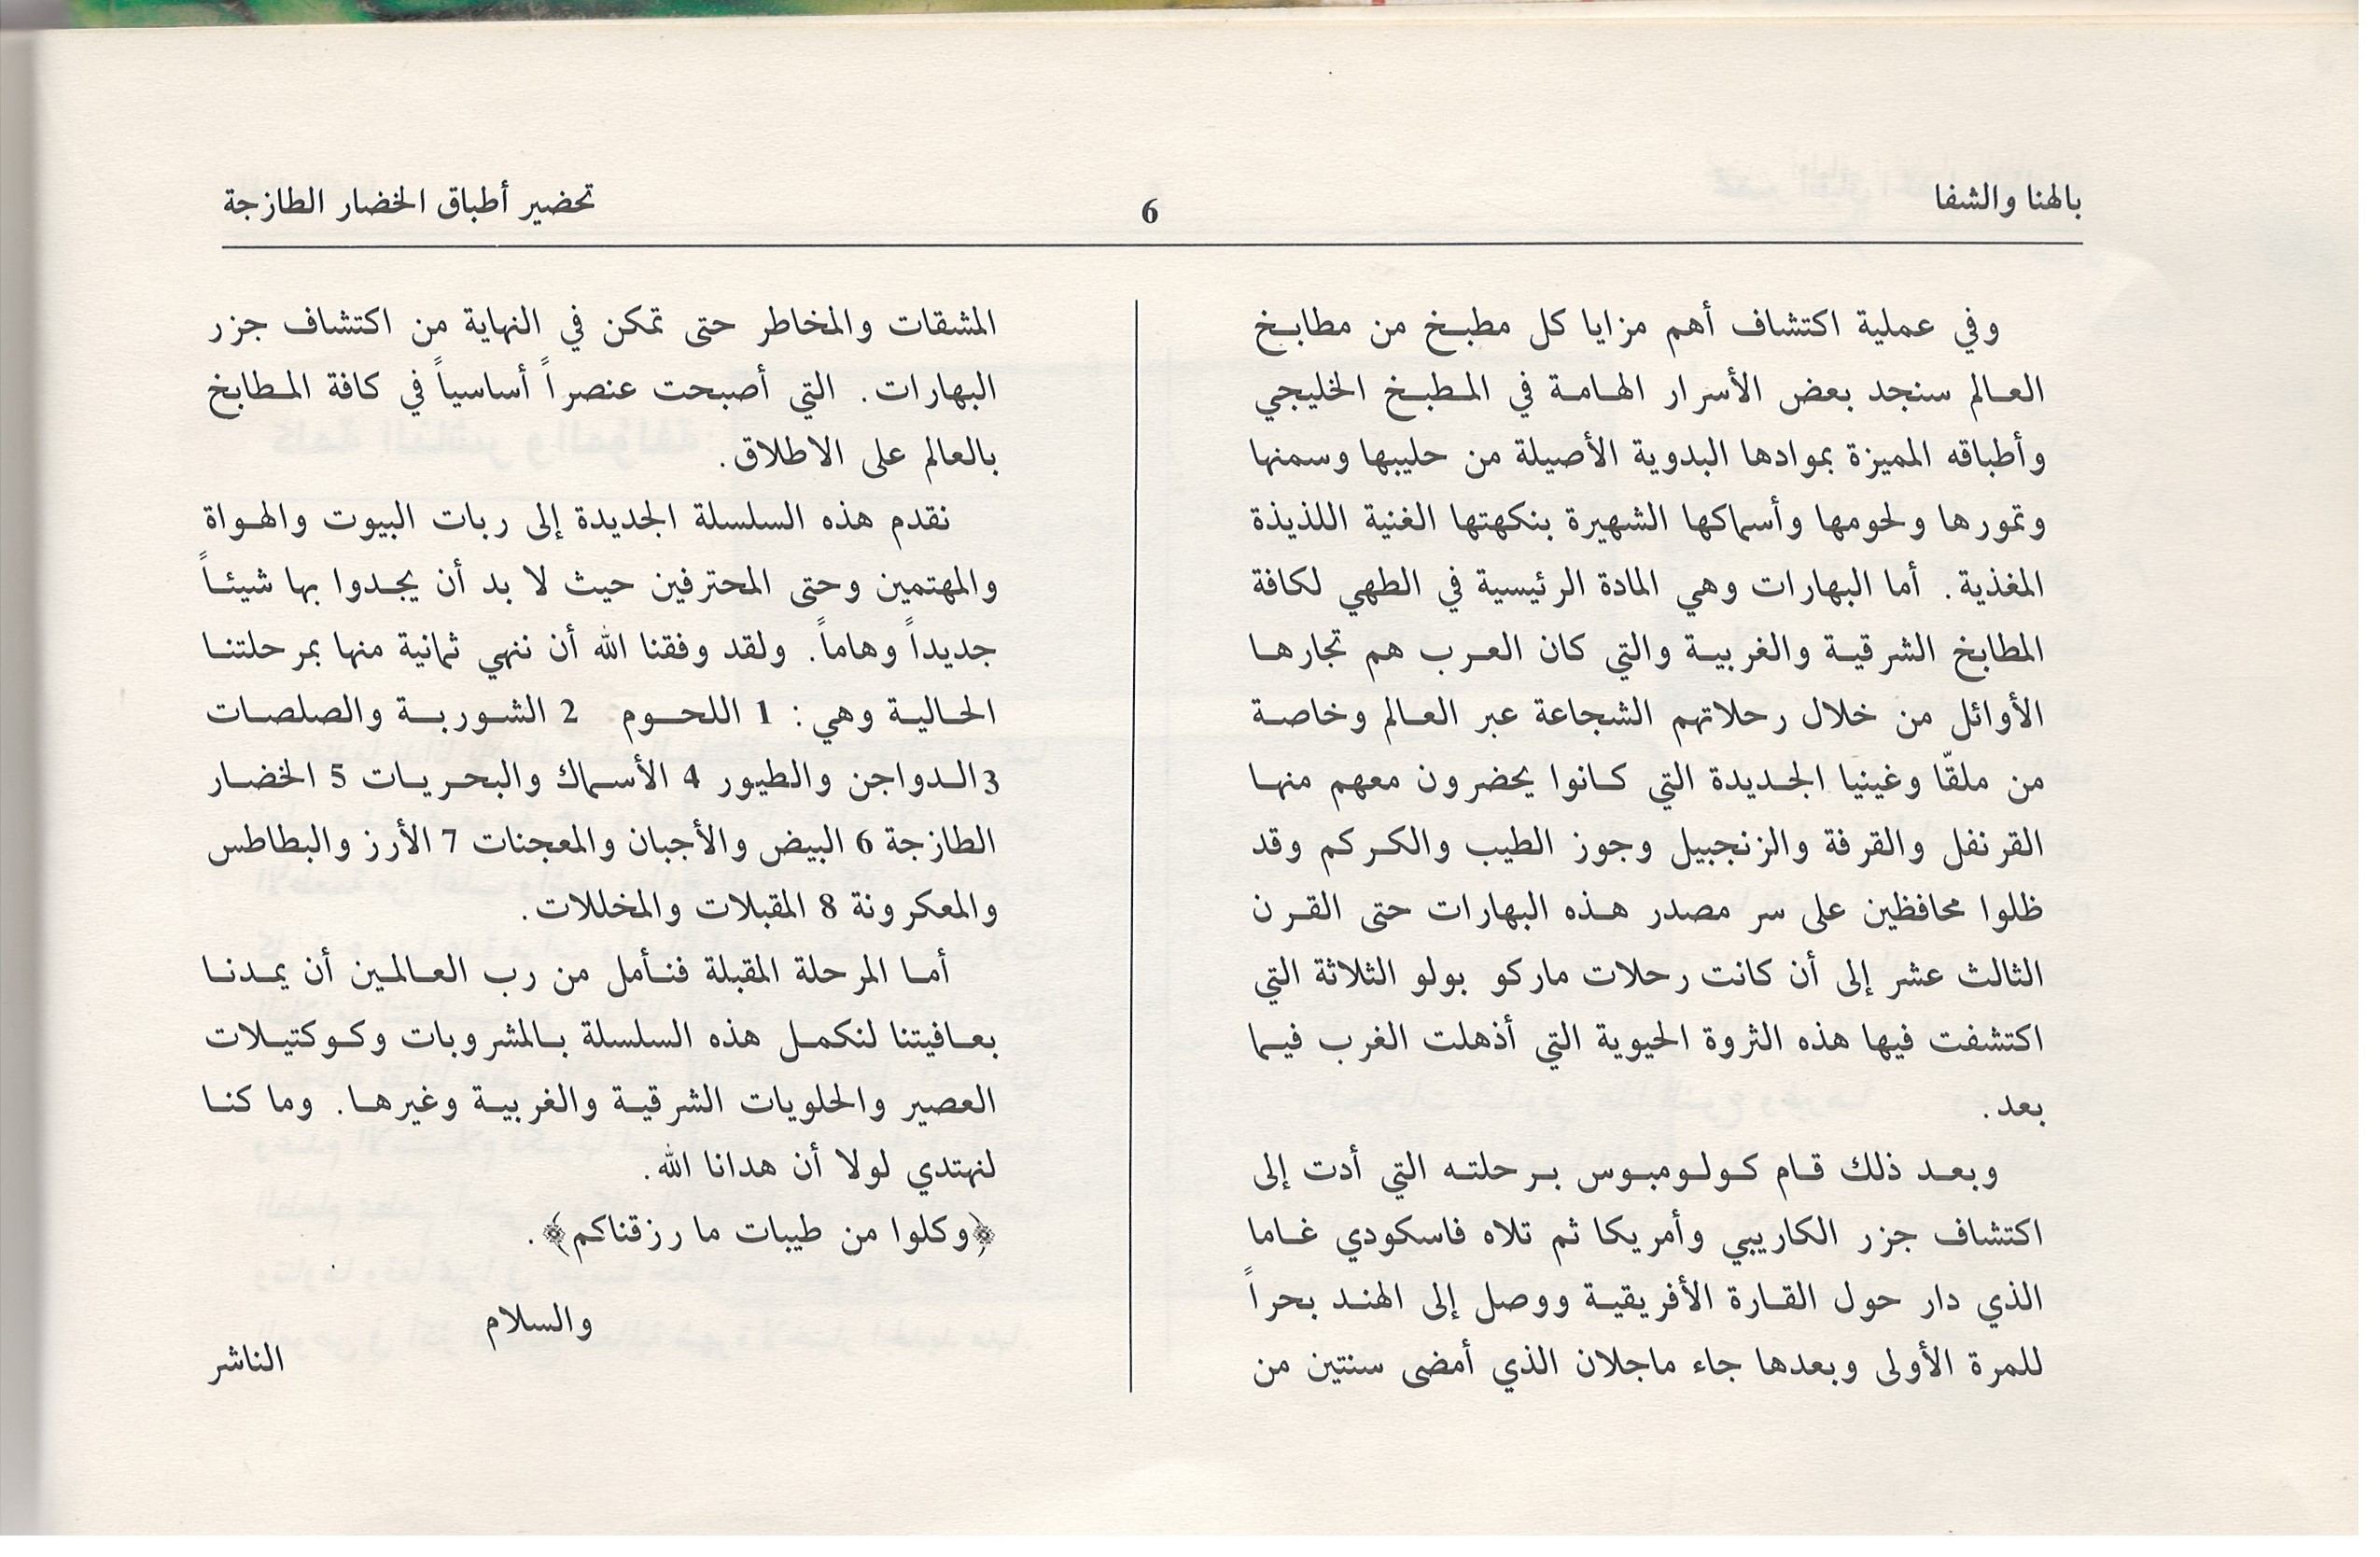 بالهنا والشفا
6
تحضير أطباق الخضار الطازجة
وفي عملية اكتشاف أهم مزايا كل مطبخ من مطابخ
العالم سنجد بعض الأسرار الهامة في المطبخ الخليجي
وأطباقه المميزة بموادها البدوية الأصيلة من حليبها وسمنها
وتمورها ولحومها وأسماكها الشهيرة بنكهتها الغنية اللذيذة
المغذية. أما البهارات وهي المادة الرئيسية في الطهي لكافة
المطابخ الشرقية والغربية والتي كان العرب هم تجارها
الأوائل من خلال رحلاتهم الشجاعة عبر العالم وخاصة
من ملقّا وغينيا الجديدة التي كانوا يحضرون معهم منها
القرنفل والقرفة والزنجبيل وجوز الطيب والكركم وقد
ظلوا محافظين على سر مصدر هذه البهارات حتى القرن
الثالث عشر إلى أن كانت رحلات ماركو بولو الثلاثة التي
اكتشفت فيها هذه الثروة الحيوية التي أذهلت الغرب فيما
بعد.
وبعد ذلك قام كولومبوس برحلته التي أدت إلى
اكتشاف جزر الكاريبي وأمريكا ثم تلاه فاسكودي غاما
الذي دار حول القارة الأفريقية ووصل إلى الهند بحراً
للمرة الأولى وبعدها جاء ماجلان الذي أمضى سنتين من
المشقات والمخاطر حتى تمكن في النهاية من اكتشاف جزر
البهارات. التي أصبحت عنصراً أساسياً في كافة المطابخ
بالعالم على الاطلاق.
نقدم هذه السلسلة الجديدة إلى ربات البيوت والهواة
والمهتمين وحتى المحترفين حيث لا بد أن يجدوا بها شيئاً
جديداً وهاماً. ولقد وفقنا الله أن ننهي ثمانية منها بمرحلتنا
الحالية وهي: 1 اللحوم 2 الشوربة والصلصات
3 الدواجن والطيور 4 الأسماك والبحريات 5 الخضار
الطازجة 6 البيض والأجبان والمعجنات 7 الأرز والبطاطس
والمعكرونة 8 المقبلات والمخللات.
أما المرحلة المقبلة فنأمل من رب العالمين أن يمدنا
بعافيتنا لنكمل هذه السلسلة بالمشروبات وكوكتيلات
العصير والحلويات الشرقية والغربية وغيرها. وما كنا
لنهتدي لولا أن هدانا الله.
﴿وكلوا من طيبات ما رزقناكم﴾.
والسلام
الناشر